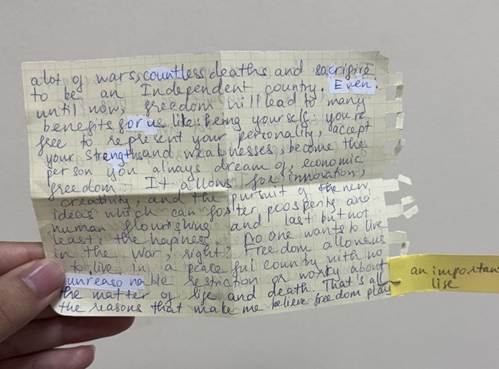 a lot of wars, countless deaths and sacrifice
to be an Independent country. Even.
until now, freedom will lead to many
benefits for us like: being yourself: you're
free to represent your personality, accept
your strengths and weaknesses, become the
person you always dream of, economic
freedom. It allows for innovation,
creativity, and the pursuit of the new
ideas which can foster prosperity and
human flourishing and last but not
least: the hapiness. No one wants to live
in the war, right? Freedom allows us
to live in a peaceful country with no
unreasonable restriction or worry about
the matter of life and death. That's all
the reasons that make me believe freedom play
an important
life